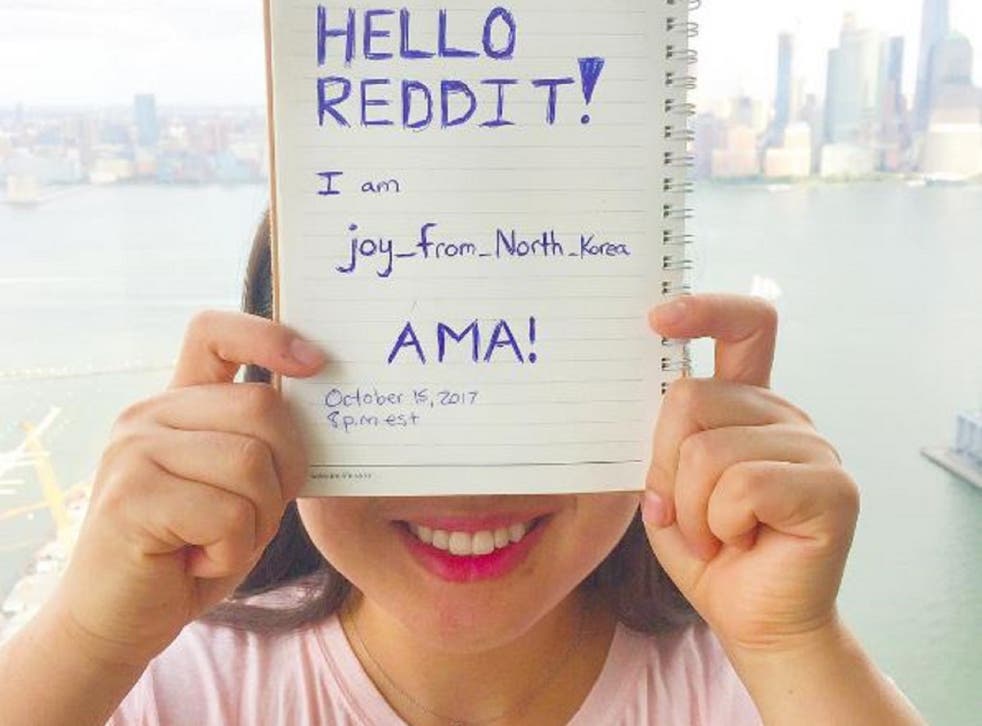 HELLO
REDDIT!
I am
joy_from_North_Korea
AMA!
October 15, 2017
8 p.m est